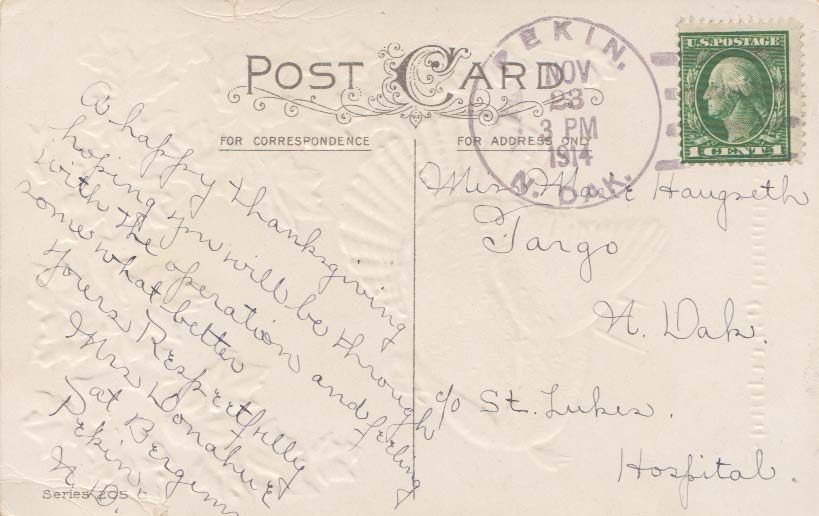 POST CARD
FOR CORRESPONDENCE
FOR ADDRESS ONLY
PEKIN,
NOV
23
3 PM
1914
N. DAK.
U.S. POSTAGE
1 CENT 1
A happy thanksgiving
hoping you will be through
with the operation and feeling
somewhat better
yours Respectfully
Mrs Donahue
at Bergem
Pekin,
N. D.
Series 205 C
Miss Marie Haugseth
Fargo
N. Dak.
c/o St. Lukes.
Hospital.